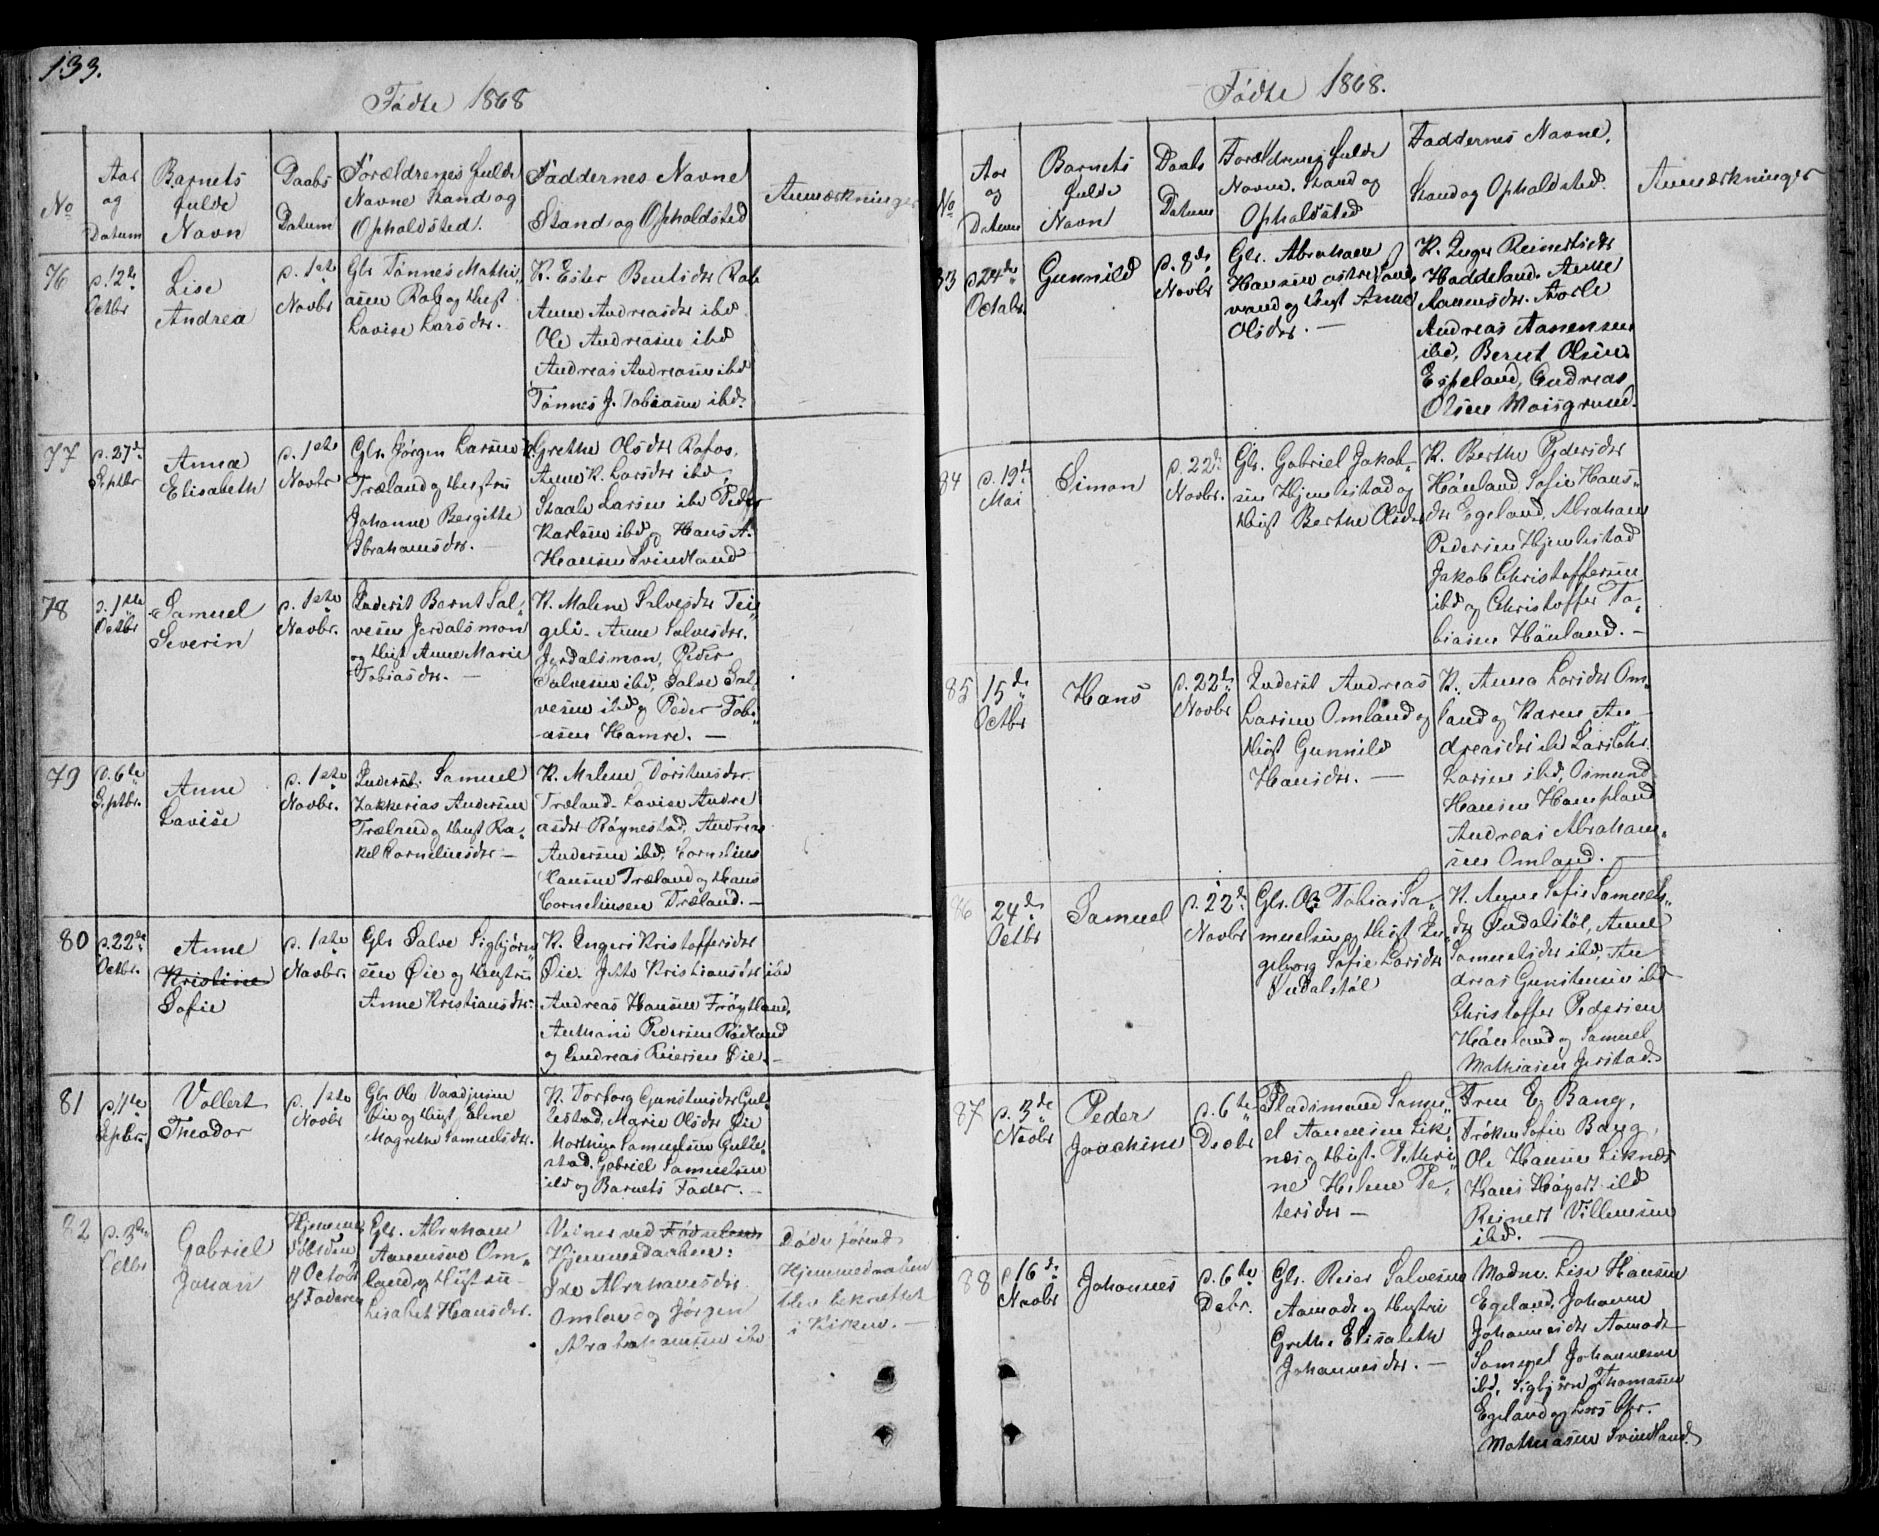 133.
Fødte 1868
No
Aar
og
Datum
Barnets
fulde
Navn
Daabs
Datum
Forældrenes fulde
Navne Stand og
Opholdsted.
Faddernes Navne
Stand og Opholdsted
Anmærkninger
76
d. 12te
Octbr
Lise
Andrea
d. 1ste
Novbr
Gbr Tønnes Mathi„
asen Rob og Hust
Lovise Larsdtr.
K. Ester Bentsdtr Rob
Anne Andreasdtr ibd
Ole Andreasen ibd
Andreas Andreasen ibd
Tønnes J. Tobiasen ibd.
77
d. 27de
Septbr
Anna
Elisabeth
d. 1ste
Novbr
Gbr. Jørgen Larsen
Træland og Hustru
Johanne Bergitte
Abrahamsdtr. —
Grethe Olsdtr Rafos,
Anne K. Larsdtr ibd,
Staale Larsen ibd Peder
Karlsen ibd og Hans A.
Hansen Svindland
78
d. 1ste
Octbr
Samuel
Severin
d. 1ste
Novbr.
Inderst Bernt Sal„
vesen Jerdalsmon
og Hust Anne Marie
Tobiasdtr. —
K. Malene Salvesdtr Tei„
geli. Anne Salvesdtr.
Jerdalsmon, Peder
Salvesen ibd, Salve Sal„
vesen ibd og Peder Tobi„
asen Hamre. —
79
d. 6te
Septbr.
Anne
Lavise
d. 1ste
Novbr.
Inderst. Samuel
Zakkerias Andersen
Træland og Hust Ra„
kel Cornelius dtr —
K. Malene Torstensdtr
Træland. Lavise Andre
asdtr Røynestad, Andreas
Andersen ibd, Cornelius
Hansen Træland og Hans
Corneliusen Træland. —
80
d. 22de
Octbr.
Anne
Kristine
Sofie
d. 1ste
Novbr.
Gbr Salve Sigbjørn„
sen Øie og Hustru
Anne Kristiansdtr.
K. Engers Kristoffersdtr
Øie. Jette Kristiansdtr ibd
Andreas Hansen Frøytland,
Anthani Pedersen Rødland
og Andreas Reiersen Øie. —
81
d. 11te
Septbr
Vollert
Theodor
d. 1ste
Novbr
Gbr Ole
Øie og Hust, Elene
Magrethe Samuelsdtr.
K. Torborg Gunstensdtr Gul„
lestad, Marie Olsdtr Øie
Samuelsen Gulle„
stad. Gabriel Samuelsen
ibd og Barnets Fader. —
82
d. 3die
Octbr
Gabriel
Johan
Hjemme
døbt den
11 Octobr
af Faderen
Gbr. Abraham
Aanensen Om„
land og Hustru
Lisabet Hansdtr.
Vidner ved Fødselen
Hjemmedaaben:
Abrahamsdtr
Omland og Jørgen
Abrahamsen ibd
Døde førend
Hjemmedaaben
blev bekræftet
i Kirken. —
Fødte 1868.
No
Aar
og
Datum
Barnets
fulde
Navn
Daabs
Datum
Forældrenes fulde
Navne. Stand og
Opholdsted
Faddernes Navne.
Stand og Opholdsted.
Anmærkninger
83
d 24de
Octobr
Gunnild
d. 8de
Novbr
Gbr. Abraham
Hansen østre Sand„
vand og Hust Anne
Olsdtr. —
K. Inger Reinertsdtr
Haddeland. Anne
Aanensdtr. Aarli
Andreas Aanensen
ibd, Bernt Olsen
Espeland, Andreas
Olsen Moisgrund.
84
d. 19de
Mai
Simon
d. 22de
Novbr.
Gbr. Gabriel Jakob„
sen Hjemlestad og
Hust Berthe Olsdtr
K. Berthe Pedersdtr
Hånland Sofie Hans„
dtr Egeland, Abraham
Pedersen Hjemlestad
Jakob Christoffersen
ibd og Christoffer To„
biasen Hånland. —
85
15de
Octbr
Hans
d. 22de
Novbr
Inderst Andreas
Larsen Omland og
Hust Gunnild
Hansdtr. —
K. Anna Larsdtr Om„
land og Karen An„
dreasdtr ibd Lars Chr.
Larsen ibd, Osmund
Hansen
Andreas Abraham„
sen Omland. —
86
24de
Octbr
Samuel
d. 22de
Novbr
Gbr. Ole Tobias Sa„
muelsen og Hust In„
geborg Sofie Larsdtr
Indalstøl
K. Anne Sofie Samuels„
dtr Indalstøl, Anne
Samuelsdtr ibd, An
dreas Gunstensen ibd
Christoffer Pedersen
Hånland og Samuel
Mathiasen Jerstad.
87
d. 3de
Novbr
Peder
Joachim
d. 6te
Decbr
Pladsmand Samu„
el Aanensen Lik„
nes og Hust. Petri„
ne Helene Pe„
tersdtr —
Frue E. Bang,
Frøken Sofie Bang,
Ole Hansen Liknes
Hans Høyert ibd
Reinert Villumsen
ibd. —
88
d 16de
Novbr
Johannes
d. 6te
Debr.
Gbr. Reier Salvesen
Aamodt og Hustru
Grethe Elisabeth
Johannesdtr. —
Madm. Lise Hansen
Egeland. Johanne
Johannesdtr Aamodt
Samuel Johannesen
ibd. Sigbjørn Thomasen
Egeland og Lars Chr.
Mathiasen Svindland.